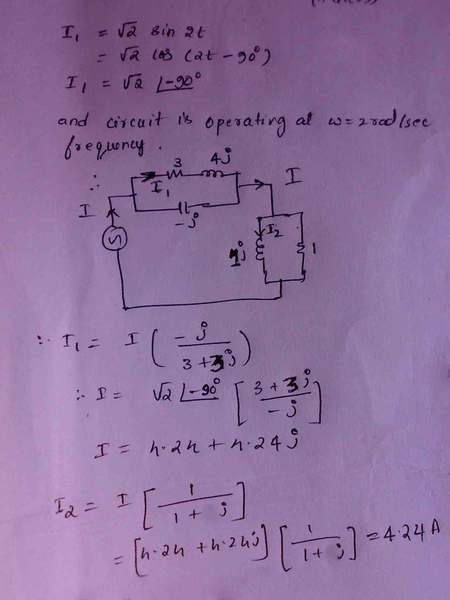 I₁ = √2 sin 2t
= √2 cos (2t - 90°)
I₁ = √2 ∠-90°
and circuit is operating at ω = 2 rad/sec
frequency.
∴
3 4j
I₁ I
I -j
I₂
1j 1
∴ I₁ = I ( -j / 3 + 3j )
∴ I = √2 ∠-90° [ 3 + 3j / -j ]
I = 4.24 + 4.24j
I₂ = I [ 1 / 1 + j ]
= [4.24 + 4.24j] [ 1 / 1 + j ] = 4.24 A